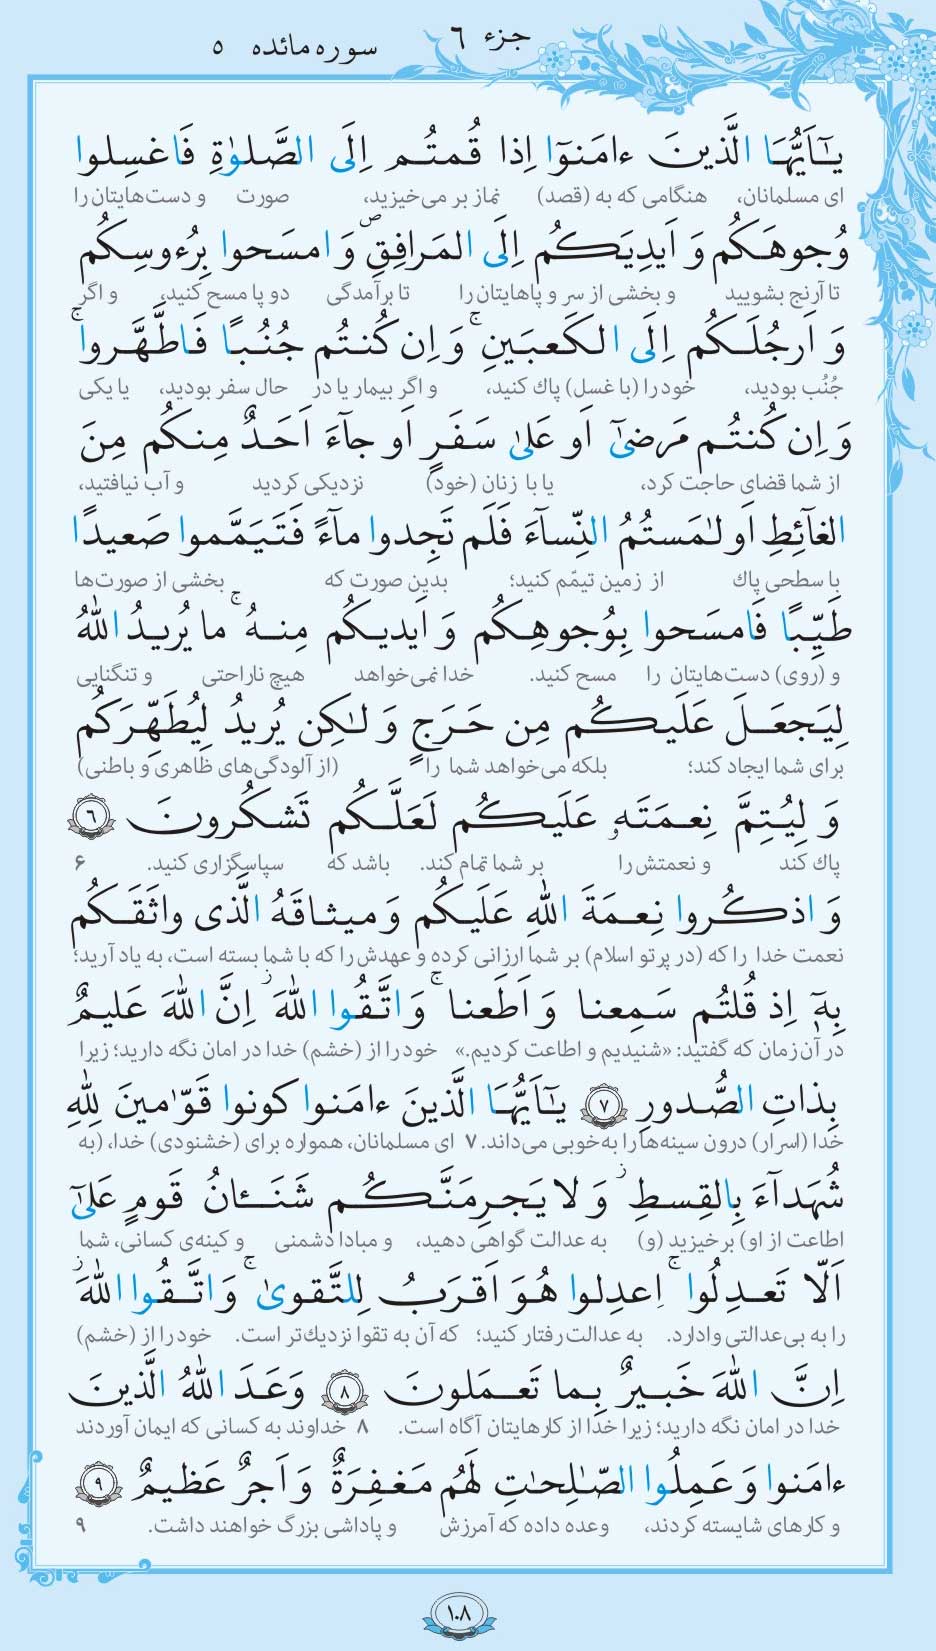 جزء ٦
سوره مائده ٥
يٰٓاَيُّهَا الَّذينَ ءامَنوٓا اِذا قُمتُم اِلَى الصَّلوٰةِ فَاغسِلوا
ای مسلمانان، هنگامی که به (قصد) نماز بر می‌خیزید، صورت و دست‌هایتان را
وُجوهَكُم وَ اَيدِيَكُم اِلَى المَرافِقِ ۖ وَ امسَحوا بِرُءوسِكُم
تا آرنج بشویید و بخشی از سر و پاهایتان را تا برآمدگی دو پا مسح کنید، و اگر
وَ اَرجُلَكُم اِلَى الكَعبَينِ ۚ وَ اِن كُنتُم جُنُبًا فَاطَّهَّروا ۚ
جُنُب بودید، خود را (با غسل) پاك کنید، و اگر بیمار یا در حال سفر بودید، یا یکی
وَ اِن كُنتُم مَرضىٰٓ اَو عَلىٰ سَفَرٍ اَو جآءَ اَحَدٌ مِنكُم مِنَ
از شما قضای حاجت کرد، یا با زنان (خود) نزدیکی کردید و آب نیافتید،
الغآئِطِ اَو لٰمَستُمُ النِّسآءَ فَلَم تَجِدوا مآءً فَتَيَمَّموا صَعيدًا
با سطحی پاك از زمین تیمّم کنید؛ بدین صورت که بخشی از صورت‌ها
طَيِّبًا فَامسَحوا بِوُجوهِكُم وَ اَيديكُم مِنهُ ۚ ما يُريدُ اللّٰهُ
و (روی) دست‌هایتان را مسح کنید. خدا نمی‌خواهد هیچ ناراحتی و تنگنایی
لِيَجعَلَ عَلَيكُم مِن حَرَجٍ وَ لٰكِن يُريدُ لِيُطَهِّرَكُم
برای شما ایجاد کند؛ بلکه می‌خواهد شما را (از آلودگی‌های ظاهری و باطنی)
وَ لِيُتِمَّ نِعمَتَهٗ عَلَيكُم لَعَلَّكُم تَشكُرونَ ٦
پاك کند و نعمتش را بر شما تمام کند. باشد که سپاسگزاری کنید. ۶
وَ اذكُروا نِعمَةَ اللّٰهِ عَلَيكُم وَ ميثاقَهُ الَّذى واثَقَكُم
نعمت خدا را که (در پرتو اسلام) بر شما ارزانی کرده و عهدش را که با شما بسته است، به یاد آرید؛
بِهٖٓ اِذ قُلتُم سَمِعنا وَ اَطَعنا ۚ وَ اتَّقُوا اللّٰهَ ۚ اِنَّ اللّٰهَ عَليمٌ
در آن زمان که گفتید: «شنیدیم و اطاعت کردیم.» خود را از (خشم) خدا در امان نگه دارید؛ زیرا
بِذاتِ الصُّدورِ ٧ يٰٓاَيُّهَا الَّذينَ ءامَنوا كونوا قَوّٰمينَ لِلّٰهِ
خدا (اسرار) درون سینه‌ها را به‌خوبی می‌داند. ۷ ای مسلمانان، همواره برای (خشنودی) خدا، (به
شُهَدآءَ بِالقِسطِ ۖ وَ لا يَجرِمَنَّكُم شَنَـٔانُ قَومٍ عَلىٰٓ
اطاعت از او) برخیزید (و) به عدالت گواهی دهید، و مبادا دشمنی و کینه‌ی کسانی، شما
اَلّا تَعدِلُوا ۚ اِعدِلوا هُوَ اَقرَبُ لِلتَّقوىٰ ۚ وَ اتَّقُوا اللّٰهَ ۚ
را به بی‌عدالتی وادارد. به عدالت رفتار کنید؛ که آن به تقوا نزدیك‌تر است. خود را از (خشم)
اِنَّ اللّٰهَ خَبيرٌ بِما تَعمَلونَ ٨ وَعَدَ اللّٰهُ الَّذينَ
خدا در امان نگه دارید؛ زیرا خدا از کارهایتان آگاه است. ۸ خداوند به کسانی که ایمان آوردند
ءامَنوا وَ عَمِلُوا الصّٰلِحٰتِ لَهُم مَغفِرَةٌ وَ اَجرٌ عَظيمٌ ٩
و کارهای شایسته کردند، وعده داده که آمرزش و پاداشی بزرگ خواهند داشت. ۹
١٠٨